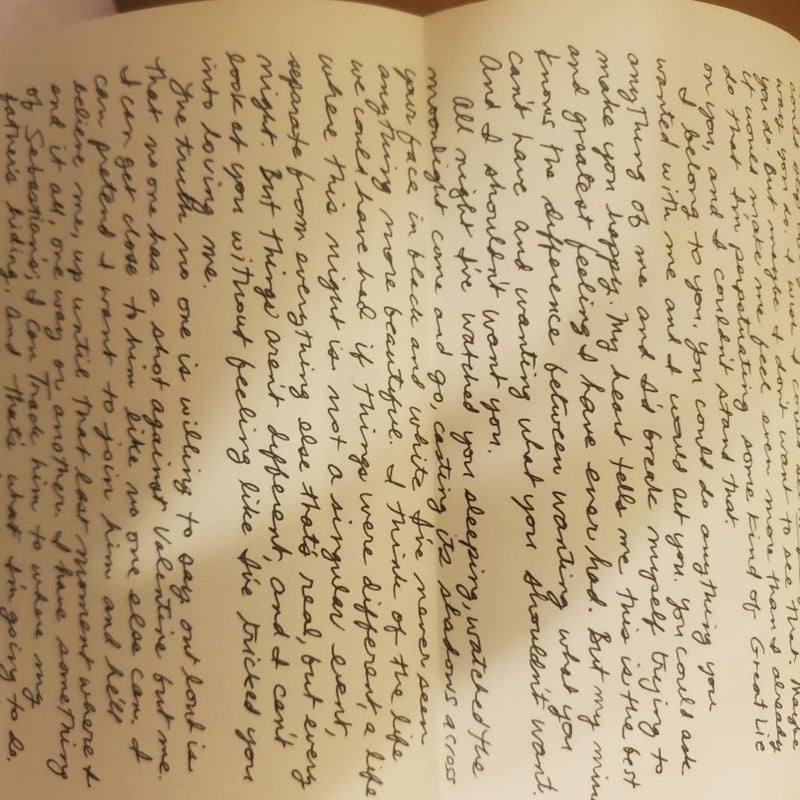 way you do. I wish I could
you do. But maybe I dont want to see that. Maybe
it would make me feel even more than I already
do that I'm perpetuating some kind of Great Lie
on you, and I couldn't stand that.
I belong to you. You could do anything you
wanted with me and I would let you. You could ask
anything of me and I'd break myself trying to
make you happy. My heart tells me this is the best
and greatest feeling I have ever had. But my mind
knows the difference between wanting what you
can't have and wanting what you shouldn't want.
And I shouldn't want you.
All night I've watched you sleeping, watched the
moonlight come and go, casting its shadows across
your face in black and white. I've never seen
anything more beautiful. I think of the life
we could have had if things were different, a life
where this night is not a singular event,
separate from everything else that's real, but every
night. But things aren't different, and I can't
look at you without feeling like I've tricked you
into loving me.
The truth no one is willing to say out loud is
that no one has a shot against Valentine but me.
I can get close to him like no one else can. I
can pretend I want to join him and he'll
believe me, up until that last moment where I
end it all, one way or another. I have something
of Sebastian's; I can track him to where my
father's hiding, and that's what I'm going to do.